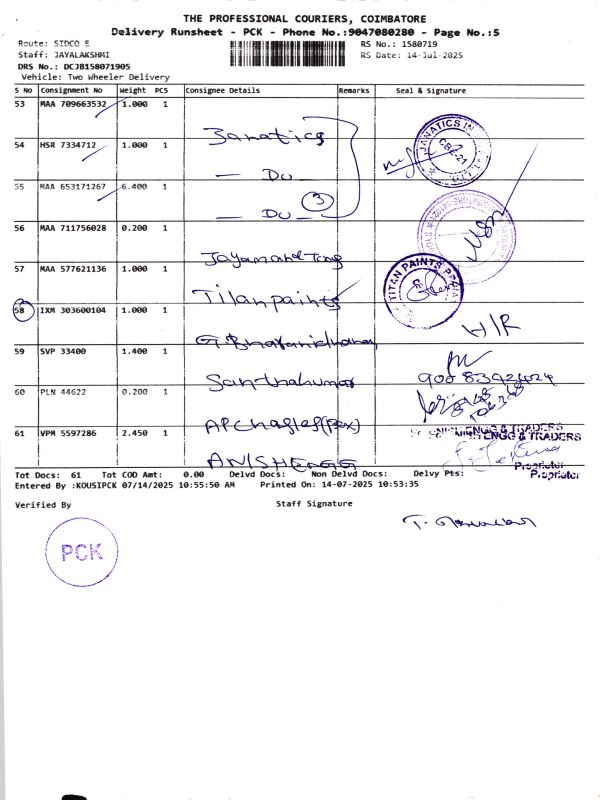 THE PROFESSIONAL COURIERS, COIMBATORE
Delivery Runsheet - PCK - Phone No.:9047080280 - Page No.:5
Route: SIDCO E
RS No.: 1580719
Staff: JAYALAKSHMI
RS Date: 14-Jul-2025
DRS No.: DCJB158071905
Vehicle: Two Wheeler Delivery
S No Consignment No Weight PCS Consignee Details Remarks Seal & Signature
53 MAA 709663532 1.000 1
Janatics
54 HSR 7334712 1.000 1
— Do —
55 MAA 653171267 6.400 1
— Do — 3
56 MAA 711756028 0.200 1
57 MAA 577621136 1.000 1
Titan paints
TITAN PAINTS
58 IXM 303600104 1.000 1
H/R
59 SVP 33400 1.400 1
Santhakumar
60 PLN 44622 0.200 1
61 VPM 5597286 2.450 1
ENGG & TRADERS
ENGG & TRADERS
ANISHENGG
Proprietor
Proprietor
Tot Docs: 61 Tot COD Amt: 0.00 Delvd Docs: Non Delvd Docs: Delvy Pts:
Entered By :KOUSIPCK 07/14/2025 10:55:50 AM Printed On: 14-07-2025 10:53:35
Verified By Staff Signature
PCK